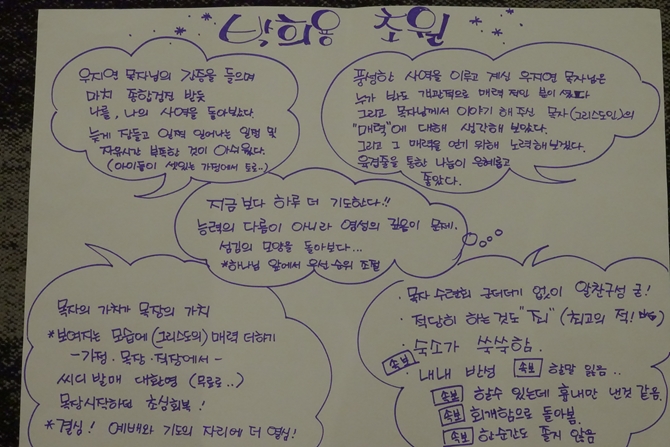 박희용 초원
우지연 목자님의 간증을 들으며
마치 종합검진 받듯
나를, 나의 사역을 돌아보았다.
늦게 잠들고 일찍 일어나는 일정 및
자유시간 부족한 것이 아쉬웠다.
(아이들이 셋있는 가정에서 토로..)
풍성한 사역을 이루고 계신 우지연 목자님은
누가 봐도 객관적으로 매력적인 분이셨다
그리고 목자님께서 이야기 해주신 목자(그리스도인)의
"매력"에 대해 생각해 보았다.
그리고 그 매력을 얻기 위해 노력해보겠다.
육겹줄을 통한 나눔이 은혜롭고
좋았다.
지금보다 하루 더 기도한다!!
능력의 다름이 아니라 영성의 깊음이 문제.
섬김의 모양을 돌아보다...
*하나님 앞에서 우선순위 조절
목자의 가치가 목장의 가치
*보여지는 모습에 (그리스도의) 매력 더하기
-가정·목장·직장에서-
씨디 발매 대환영 (무료로..)
목장시작하던 초심회복!
*결심! 예배와 기도의 자리에 더 열심!
· 목자 수련회 군더더기 없이 알찬구성 굳!
· 적당히 하는것도 "죄" (최고의 적!)
· 숙소가 쑥쑥함.
속보 내내 반성 속보 할말 잃음..
속보 할수 있는데 흉내만 낸것 같음
속보 회개함으로 돌아봄.
속보 한순간도 졸지 않음